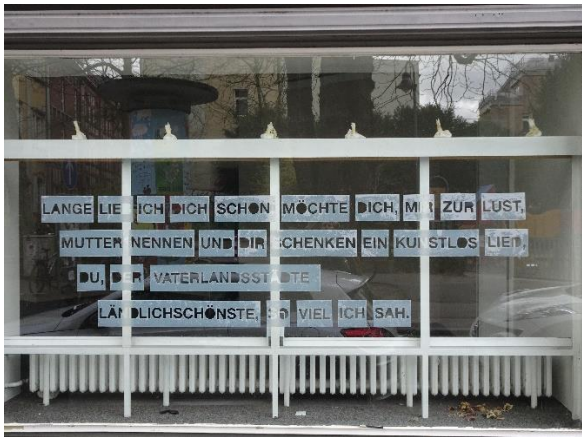 LANGE LIEB ICH DICH SCHON MÖCHTE DICH, MIR ZUR LUST,
MUTTER NENNEN UND DIR SCHENKEN EIN KUNSTLOS LIED,
DU, DER VATERLANDSSTÄDTE
LÄNDLICHSCHÖNSTE, SO VIEL ICH SAH.